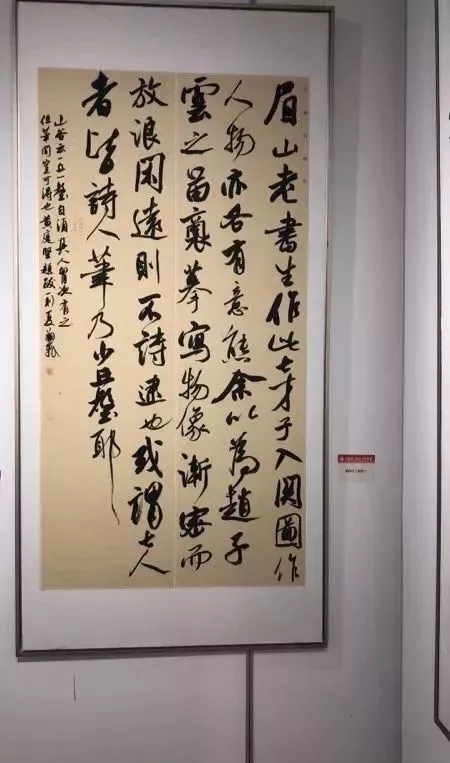 眉山老書生作此七才子入関圖作
人物亦各有意態余以為趙子
雲之苗裔摹寫物像漸密而
放浪閑遠則不詩逮也或謂七人
者皆詩人筆乃少丘壑耶
山谷云一丘一壑自須其人胸次有之
但筆間豈可得也黃庭堅題跋一則夏